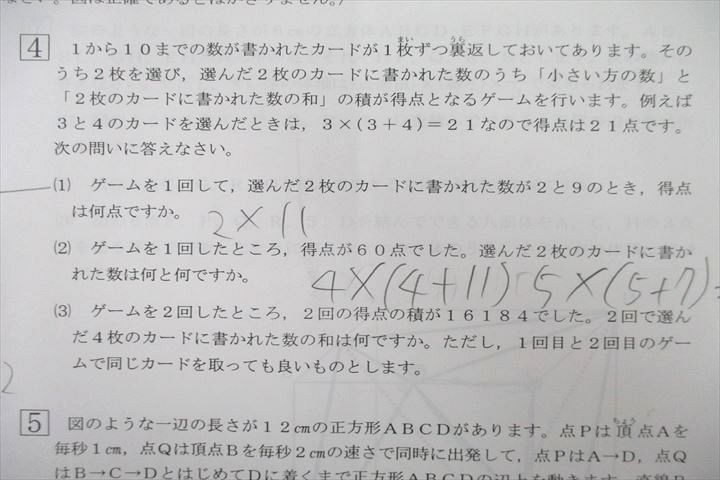 4 1から10までの数が書かれたカードが1枚ずつ裏返しておいてあります。その
うち2枚を選び，選んだ2枚のカードに書かれた数のうち「小さい方の数」と
「2枚のカードに書かれた数の和」の積が得点となるゲームを行います。例えば
3と4のカードを選んだときは，3×(3＋4)＝21なので得点は21点です。
次の問いに答えなさい。
(1) ゲームを1回して，選んだ2枚のカードに書かれた数が2と9のとき，得点
は何点ですか。
2×11
(2) ゲームを1回したところ，得点が60点でした。選んだ2枚のカードに書か
れた数は何と何ですか。
4×(4+11) 5×(5+7)
(3) ゲームを2回したところ，2回の得点の積が16184でした。2回で選ん
だ4枚のカードに書かれた数の和は何ですか。ただし，1回目と2回目のゲー
ムで同じカードを取っても良いものとします。
2
5 図のような一辺の長さが12㎝の正方形ABCDがあります。点Pは頂点Aを
毎秒1㎝，点Qは頂点Bを毎秒2㎝の速さで同時に出発して，点PはA→D，点Q
はB→C→DとはじめてDに着くまで正方形ABCDの辺上を動きます。